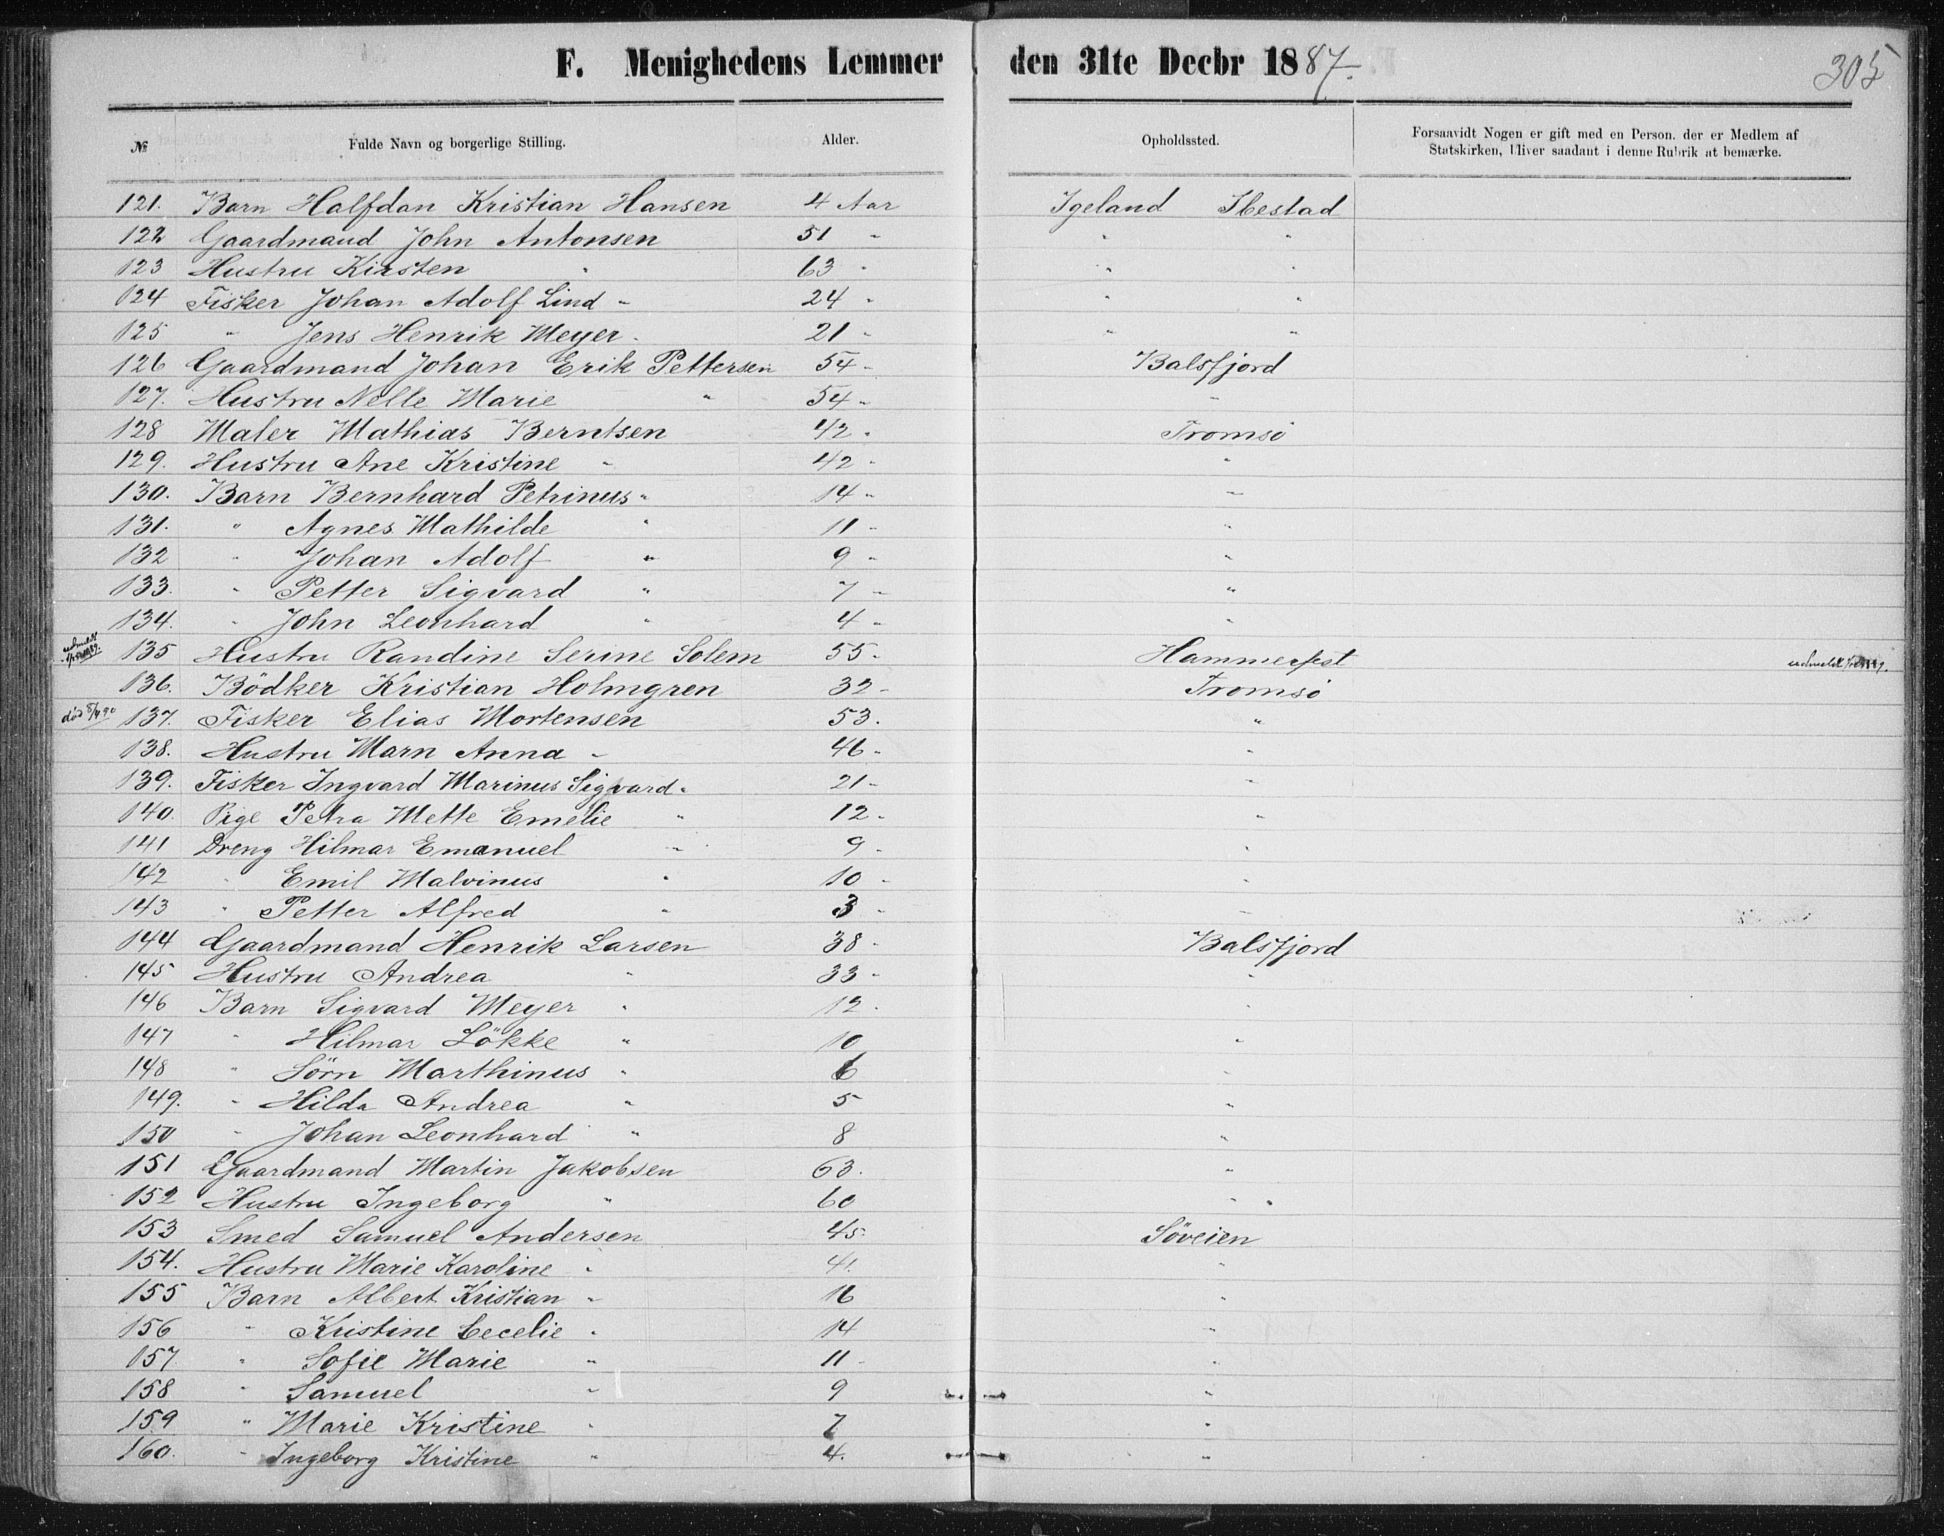 F. Menighedens Lemmer den 31te Decbr 1887. 305
№ Fulde Navn og borgerlige Stilling. Alder. Opholdssted. Forsaavidt Nogen er gift med en Person, der er Medlem af
Statskirken, bliver saadant i denne Rubrik at bemærke.
121. Barn Halfdan Kristian Hansen 4 Aar Igeland Ibestad
122 Gaardmand John Antonsen 51 " " "
123 Hustru Kirsten " 63 " " "
124 Fisker Johan Adolf Lind - 24 " " "
125 " Jens Henrik Meyer - 21 " " "
126 Gaardmand Johan Erik Pettersen 54 - Balsfjord
127. Hustru Nelle Marie " 54 " "
128 Maler Mathias Berntsen 42 " Tromsö
129. Hustru Ane Kristine " 42 " "
130. Barn Bernhard Petrinus " 14 " "
131. " Agnes Mathilde " 11 " "
132 " Johan Adolf " 9 " "
133. " Petter Sigvard " 7 " "
134. " John Leonhard " 4 " "
udmeldt 135 Hustru Randine Serine Solem 55 - Hammerfest udmeldt
136. Bödker Kristian Holmgren 32 - Tromsö
död 8/4 90 137. Fisker Elias Mortensen 53. "
138. Hustru Marn Anna - 46 - "
139. Fisker Ingvard Marinus Sigvard " 21 - "
140. Pige Petra Mette Emelie " 12 - "
141 Dreng Hilmar Emanuel " 9 - "
142 " Emil Malvinus " 10 - "
143 " Petter Alfred " 3 - "
144 Gaardmand Henrik Larsen 38 - Balsfjord
145 Hustru Andrea " 33 - "
146 Barn Sigvard Meyer " 12. "
147 " Hilmar Lökke " 10 "
148 " Sörn Marthinus " 6 "
149. " Hilda Andrea " 5 "
150 " Johan Leonhard " 8 "
151 Gaardmand Martin Jakobsen 63. "
152 Hustru Ingeborg " 60 " "
153 Smed Samuel Andersen 45. Söveien
154. Hustru Marie Karoline " 41. "
155 Barn Albert Kristian " 16 "
156 " Kristine Cecelie " 14 "
157. " Sofie Marie " 11 "
158 " Samuel " 9 "
159 " Marie Kristine " 7 "
160. " Ingeborg Kristine " 4. "